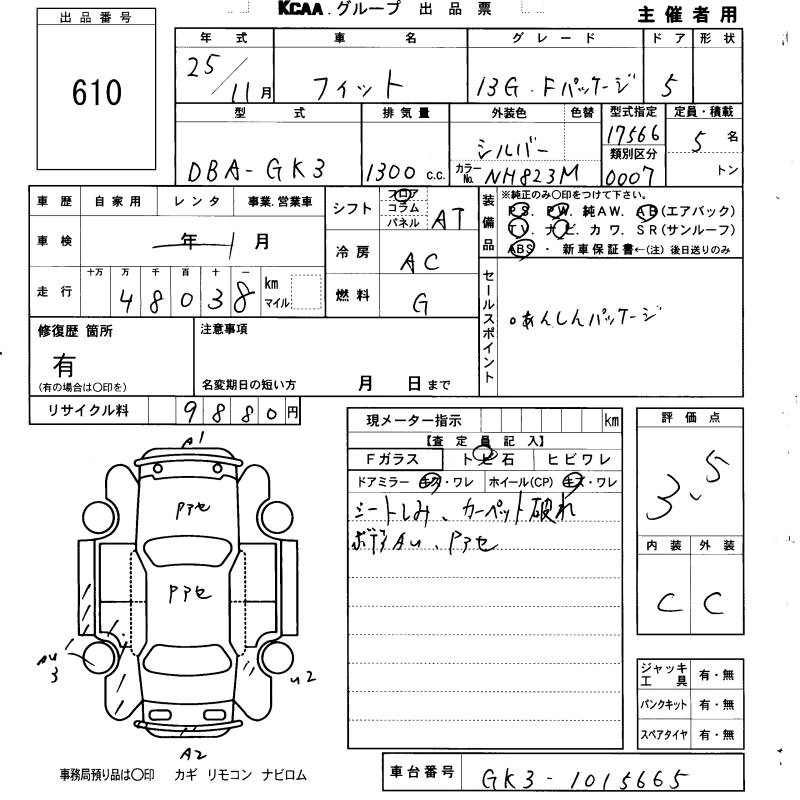 KCAA.グループ 出品票
主催者用
出品番号
610
年式 車名 グレード ドア 形状
25/11月 フィット 13G.Fパッケージ 5
型式 排気量 外装色 色替 型式指定 定員・積載
DBA-GK3 1300 c.c. シルバー 17566 5名
カラーNo. NH823M 類別区分 0007 トン
車歴 自家用 レンタ 事業.営業車
車検 年 月
走行 十万 万 千 百 十 一 km マイル
48038
シフト フロア コラム パネル AT
冷房 AC
燃料 G
装備品
※純正のみ〇印をつけて下さい。
PS. PW. 純AW. AB(エアバック)
TV. ナビ. カワ. SR(サンルーフ)
ABS ・ 新車保証書←(注) 後日送りのみ
セールスポイント
。あんしんパッケージ
修復歴 箇所
有
(有の場合は〇印を)
注意事項
名変期日の短い方 月 日まで
リサイクル料 9880円
現メーター指示 km
【査定員記入】
Fガラス トビ石 ヒビワレ
ドアミラー キズ・ワレ ホイール(CP) キズ・ワレ
シートしみ、カーペット破れ
ボデAU、Pアセ
評価点
3、5
内装 外装
C C
ジャッキ工具 有・無
パンクキット 有・無
スペアタイヤ 有・無
A1
Pアセ
Pアセ
AU3
U2
A2
事務局預り品は〇印 カギ リモコン ナビロム
車台番号 GK3-1015665